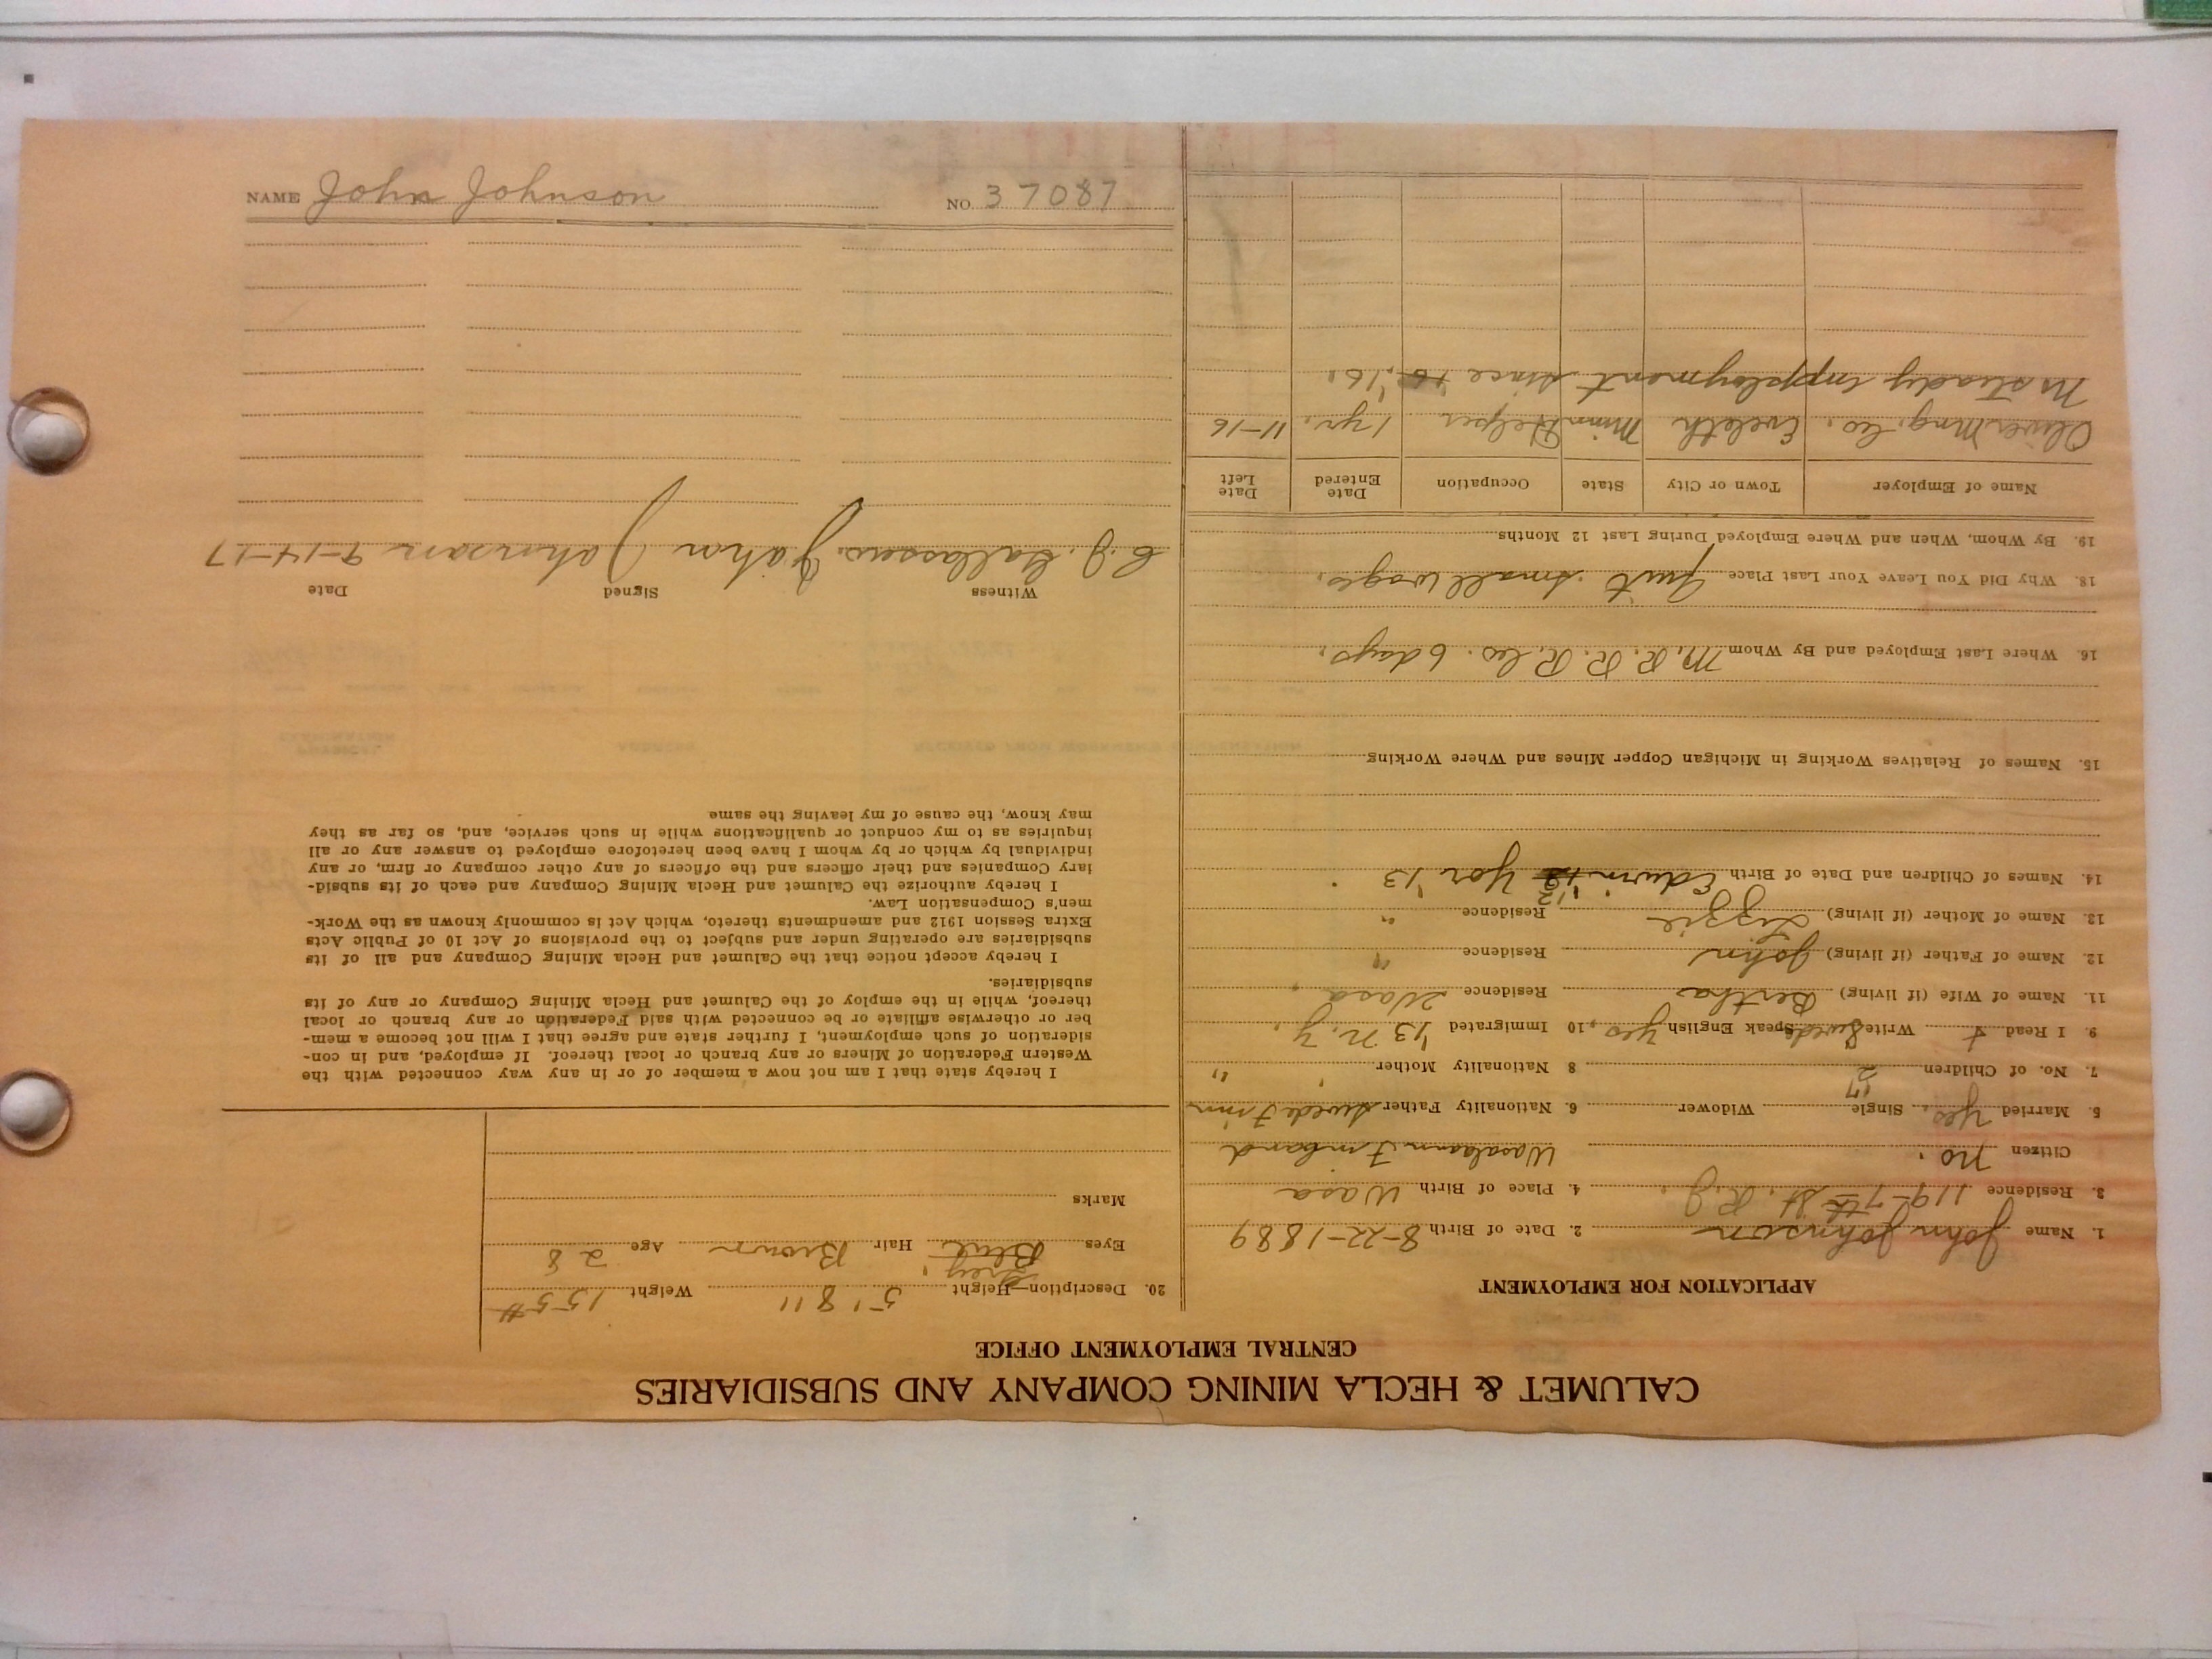 CALUMET & HECLA MINING COMPANY AND SUBSIDIARIES
CENTRAL EMPLOYMENT OFFICE
APPLICATION FOR EMPLOYMENT
1. Name John Johnson 2. Date of Birth 8-22-1889
3. Residence 119-7th St. R.J. 4. Place of Birth Wasa
Citizen no. Wasalaan
5. Married Yes. Single Widower 6. Nationality Father Swede Finn
'17
7. No. of Children 2 8 Nationality Mother " "
9. I Read + Write Swede Speak English Yes, 10 Immigrated '13 N.Y.
11. Name of Wife (if living) Bertha Residence Wasa
12. Name of Father (if living) John Residence "
13. Name of Mother (if living) Lizzie Residence "
14. Names of Children and Date of Birth Edwin '12 Yor '13
15. Names of Relatives Working in Michigan Copper Mines and Where Working
16. Where Last Employed and By Whom M. R. R. R. Co. 6 days.
18. Why Did You Leave Your Last Place Quit small wages.
19. By Whom, When and Where Employed During Last 12 Months
Name of Employer Town or City State Occupation Date Entered Date Left
Oliver Mng. Co. Eveleth Minn Helper 1 yr. 11-16
N steady employment since '16.
20. Description—Height 5' 8 11 Weight 155#
Grey
Eyes Blue Hair Brown Age 28
Marks
I hereby state that I am not now a member of or in any way connected with the
Western Federation of Miners or any branch or local thereof. If employed, and in con-
sideration of such employment, I further state and agree that I will not become a mem-
ber or otherwise affiliate or be connected with said Federation or any branch or local
thereof, while in the employ of the Calumet and Hecla Mining Company or any of its
subsidiaries.
I hereby accept notice that the Calumet and Hecla Mining Company and all of its
subsidiaries are operating under and subject to the provisions of Act 10 of Public Acts
Extra Session 1912 and amendments thereto, which Act is commonly known as the Work-
men's Compensation Law.
I hereby authorize the Calumet and Hecla Mining Company and each of its subsid-
iary Companies and their officers and the officers of any other company or firm, or any
individual by which or by whom I have been heretofore employed to answer any or all
inquiries as to my conduct or qualifications while in such service, and, so far as they
may know, the cause of my leaving the same.
Witness Signed Date
John Johnson 9-14-17
NAME John Johnson NO. 37087